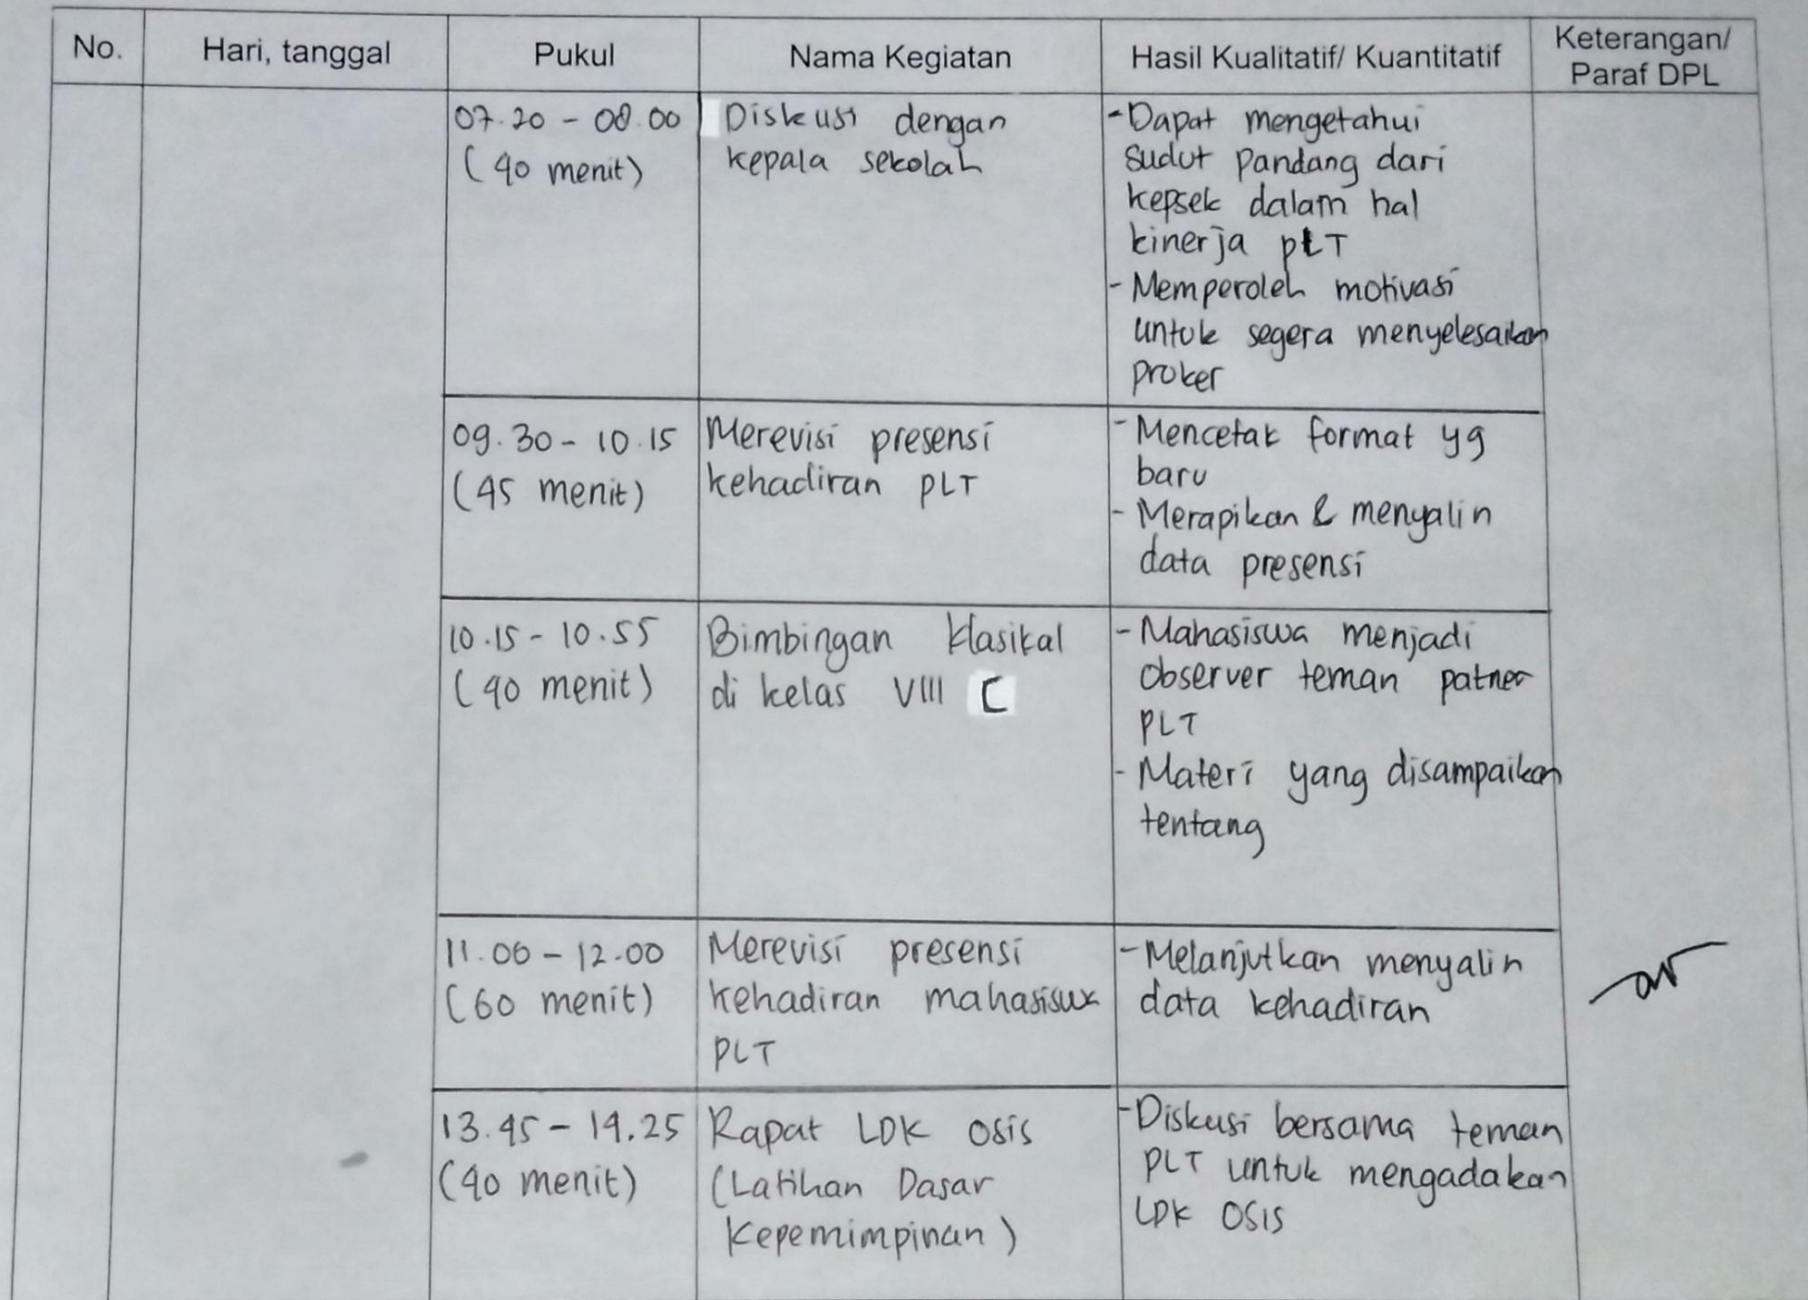 No.
Hari, tanggal
Pukul
Nama Kegiatan
Hasil Kualitatif/ Kuantitatif
Keterangan/
Paraf DPL
07.20 - 08.00
(40 menit)
Diskusi dengan
kepala sekolah
- Dapat mengetahui
sudut pandang dari
kepsek dalam hal
kinerja PLT
- Memperoleh motivasi
untuk segera menyelesaikan
proker
09.30 - 10.15
(45 menit)
Merevisi presensi
kehadiran PLT
- Mencetak format yg
baru
- Merapikan & menyalin
data presensi
10.15 - 10.55
(40 menit)
Bimbingan klasikal
di kelas VIII C
- Mahasiswa menjadi
observer teman patner
PLT
- Materi yang disampaikan
tentang
11.00 - 12.00
(60 menit)
Merevisi presensi
kehadiran mahasiswa
PLT
- Melanjutkan menyalin
data kehadiran
13.45 - 14.25
(40 menit)
Rapat LDK OSIS
(Latihan Dasar
Kepemimpinan)
- Diskusi bersama teman
PLT untuk mengadakan
LDK OSIS